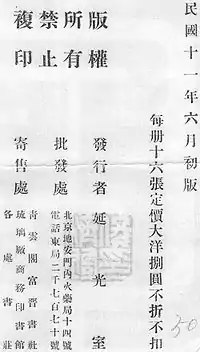 民國十一年六月初版
每册十六張定價大洋捌圓不折不扣
版權所有
禁止複印
發行者 延光室
北京地安門内火藥局十四號
電話東局二千七百七十號
批發處
寄售處
青雲閣富晋書社
琉璃廠商務印書館
各處書莊
50